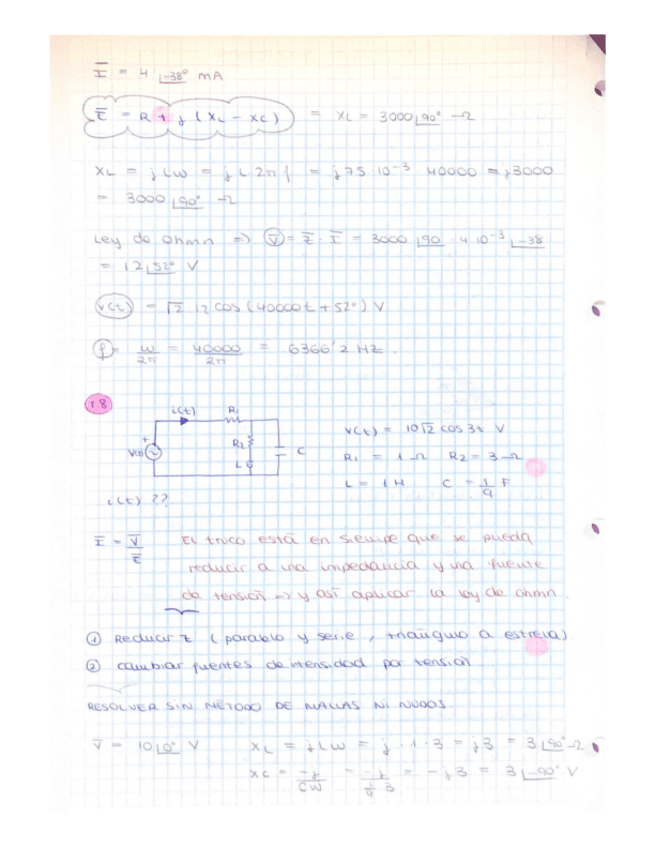 I = 4 |-38° mA
Z = R + j (XL - XC) = XL = 3000 |90° Ω
XL = j Lω = j L 2π f = j75 10⁻³ 40000 = j3000
= 3000 |90° Ω
Ley de Ohmn => V = Z · I = 3000 |90 · 4 10⁻³ |-38
= 12 |52° V
V(t) = √2 12 cos (40000t + 52°) V
f = ω/2π = 40000/2π = 6366'2 HZ.
1.8
i(t) R1
V(t) + R2 L C
V(t) = 10√2 cos 3t V
R1 = 1 Ω R2 = 3 Ω
L = 1 H C = 1/9 F
i(t) ??
I = V/Z
El truco está en siempe que se pueda
reducir a una impedancia y una fuente
de tensión => y así aplicar la ley de ohmn.
① Reducir Z (paralelo y serie, triángulo a estrella)
② cambiar fuentes de intensidad por tensión.
RESOLVER SIN MÉTODO DE MALLAS NI NUDOS.
V = 10 |0° V XL = jLω = j · 1 · 3 = j3 = 3 |90° Ω
XC = -j/Cω = -j/(1/9 3) = -j3 = 3 |-90° V